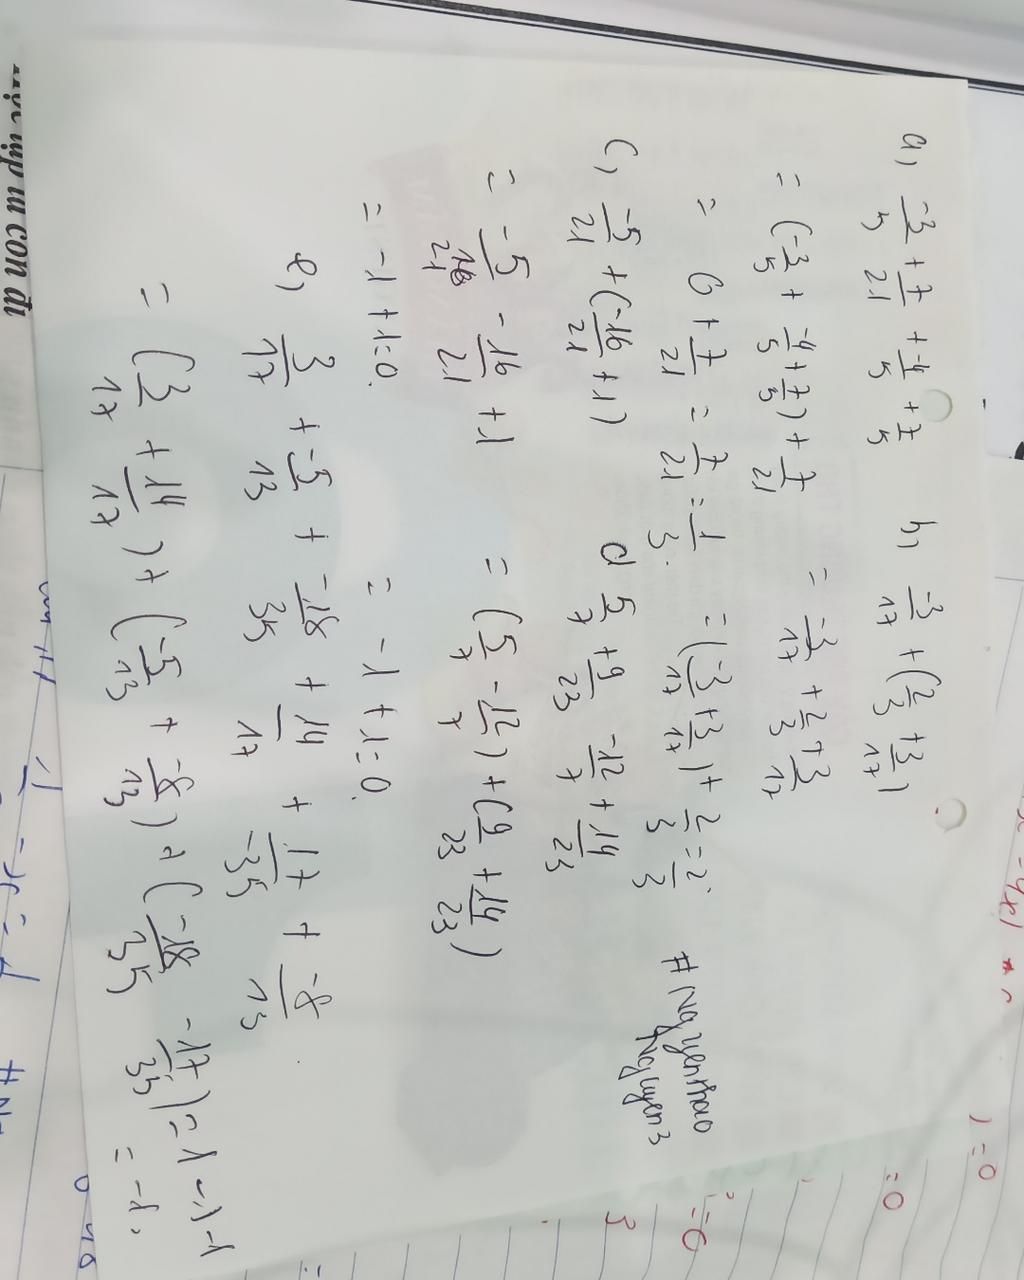 a, -3/5 + 7/21 + -4/5 + 7/5
= (-3/5 + -4/5 + 7/5) + 7/21
= 0 + 7/21 = 7/21 = 1/3.
b, -3/17 + (2/3 + 3/17)
= -3/17 + 2/3 + 3/17
= (-3/17 + 3/17) + 2/3 = 2/3.
c, -5/21 + (-16/21 + 1)
= -5/21 - 16/21 + 1
= -1 + 1 = 0.
d 5/7 + 9/23 -12/7 + 14/23
= (5/7 - 12/7) + (9/23 + 14/23)
= -1 + 1 = 0.
e, 3/17 + -5/13 + -18/35 + 14/17 + 17/-35 + -8/13
= (3/17 + 14/17) + (-5/13 + -8/13) + (-18/35 - 17/35) = 1 - 1 - 1
= -1.
# Nguyenthao
Nguyen3
con đi
= 0
= 0